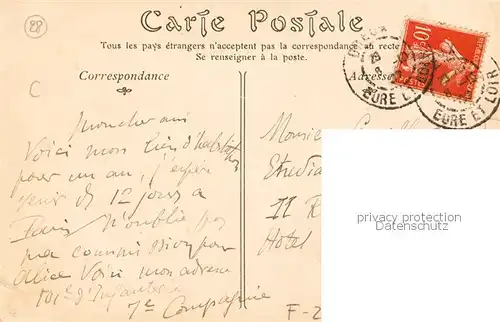 28
Carte Postale
Tous les pays étrangers n'acceptent pas la correspondance au recto
Se renseigner à la poste.
Correspondance
Adresse
10
DREUX
EURE ET LOIR
EURE ET LOIR
C
Mon cher ami
Voici mon lieu d'habitation
pour un an, j'espère
venir de 12 jours a
Paris N'oublie pas
ma commission pour
Alice Voici mon adresse
101e d'Infanterie
7e Compagnie
Monsieur
Etudia
11 R
Hotel
F-2
privacy protection
Datenschutz